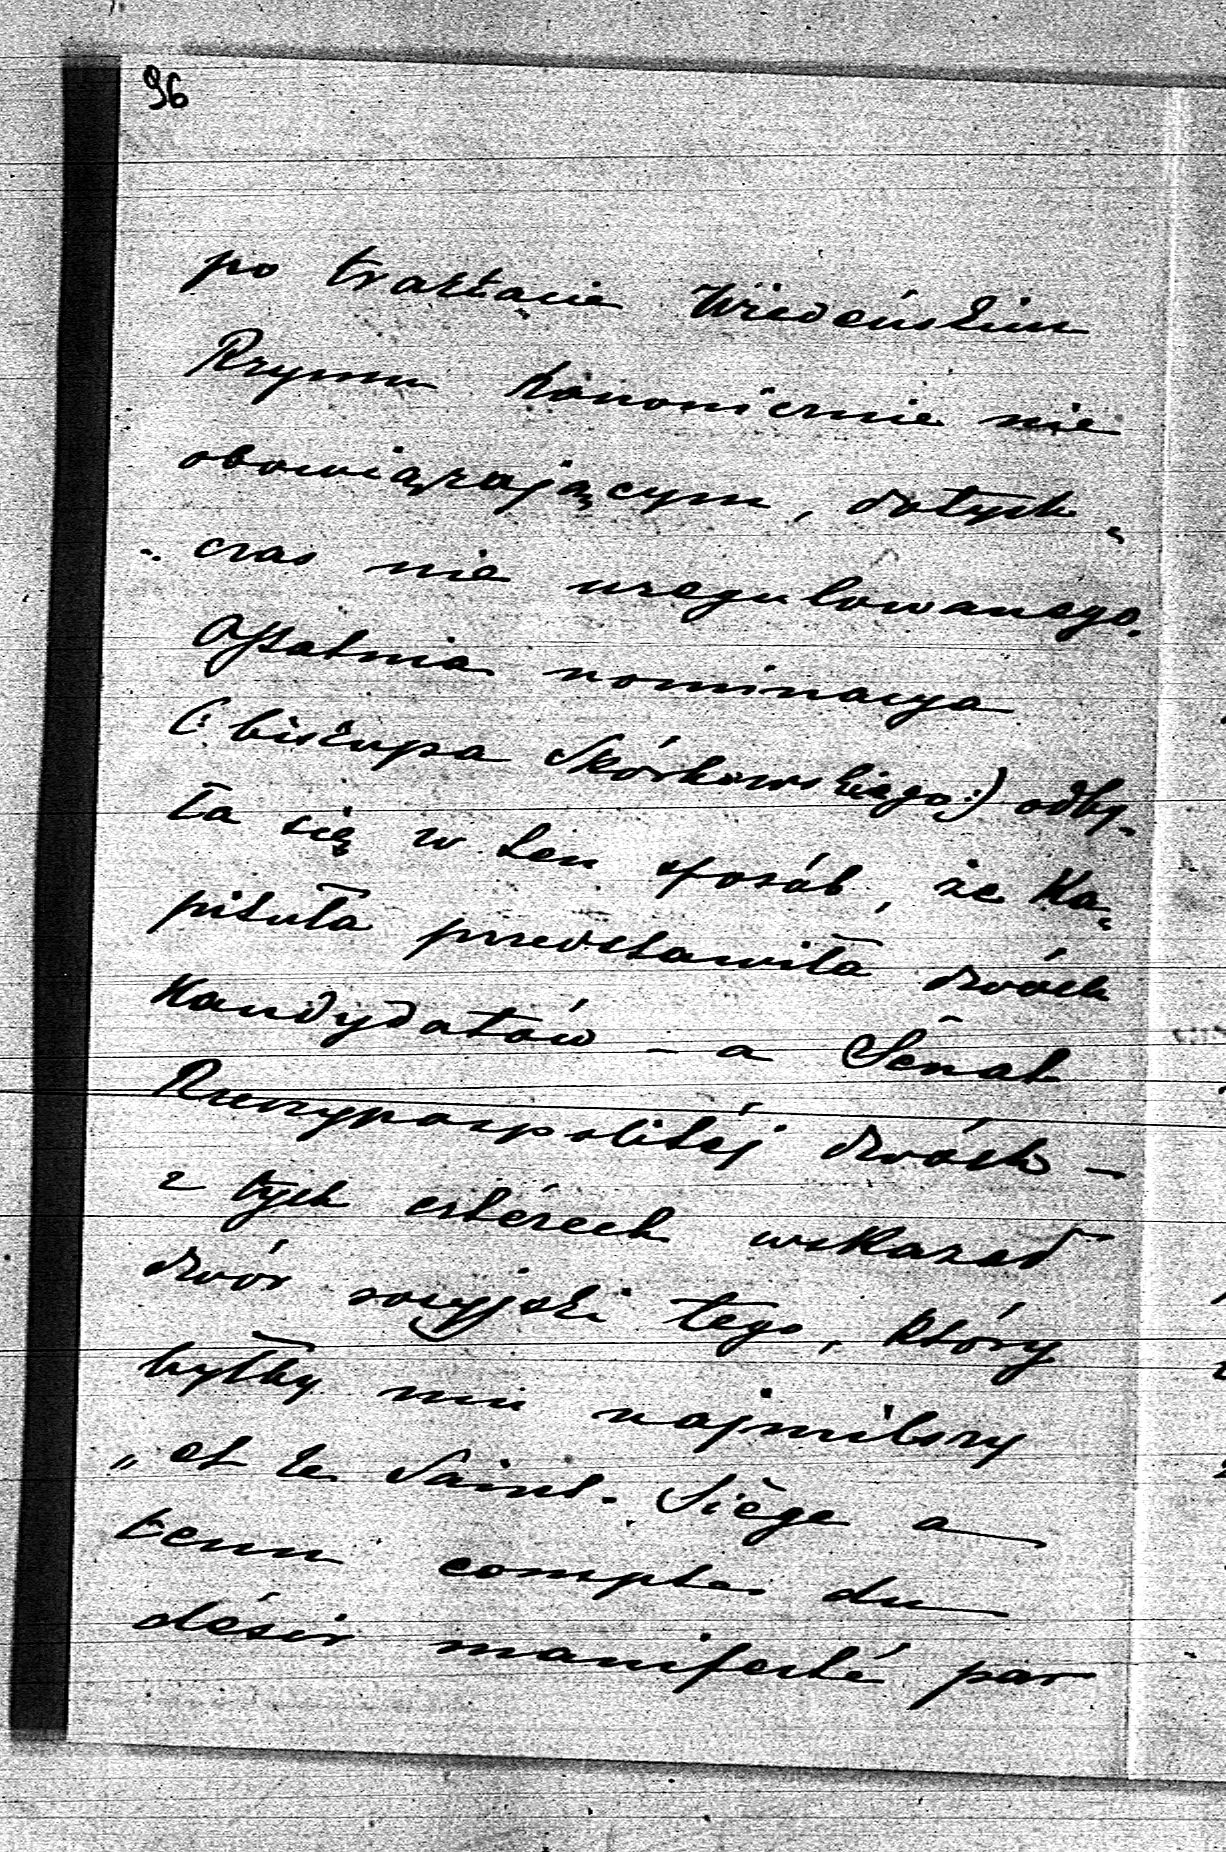 96
po traktacie Wiedeńskim
Rzymu kanonicznie nie
obowiązującym, dotych„
„czas nie uregulowanego.
Ostatnia nominacya
(: biskupa Skórkowskiego:) odby„
ła się w ten sposób, że Ka„
pituła przedstawiła dwóch
kandydatów – a Senat
Rzeczypospolitéj dwóch –
z tych cztérech wskazał
dwór rosyjski tego, który
byłby mu najmilszy
„et le Saint. Siège a
tenu compte du
désir manifesté par